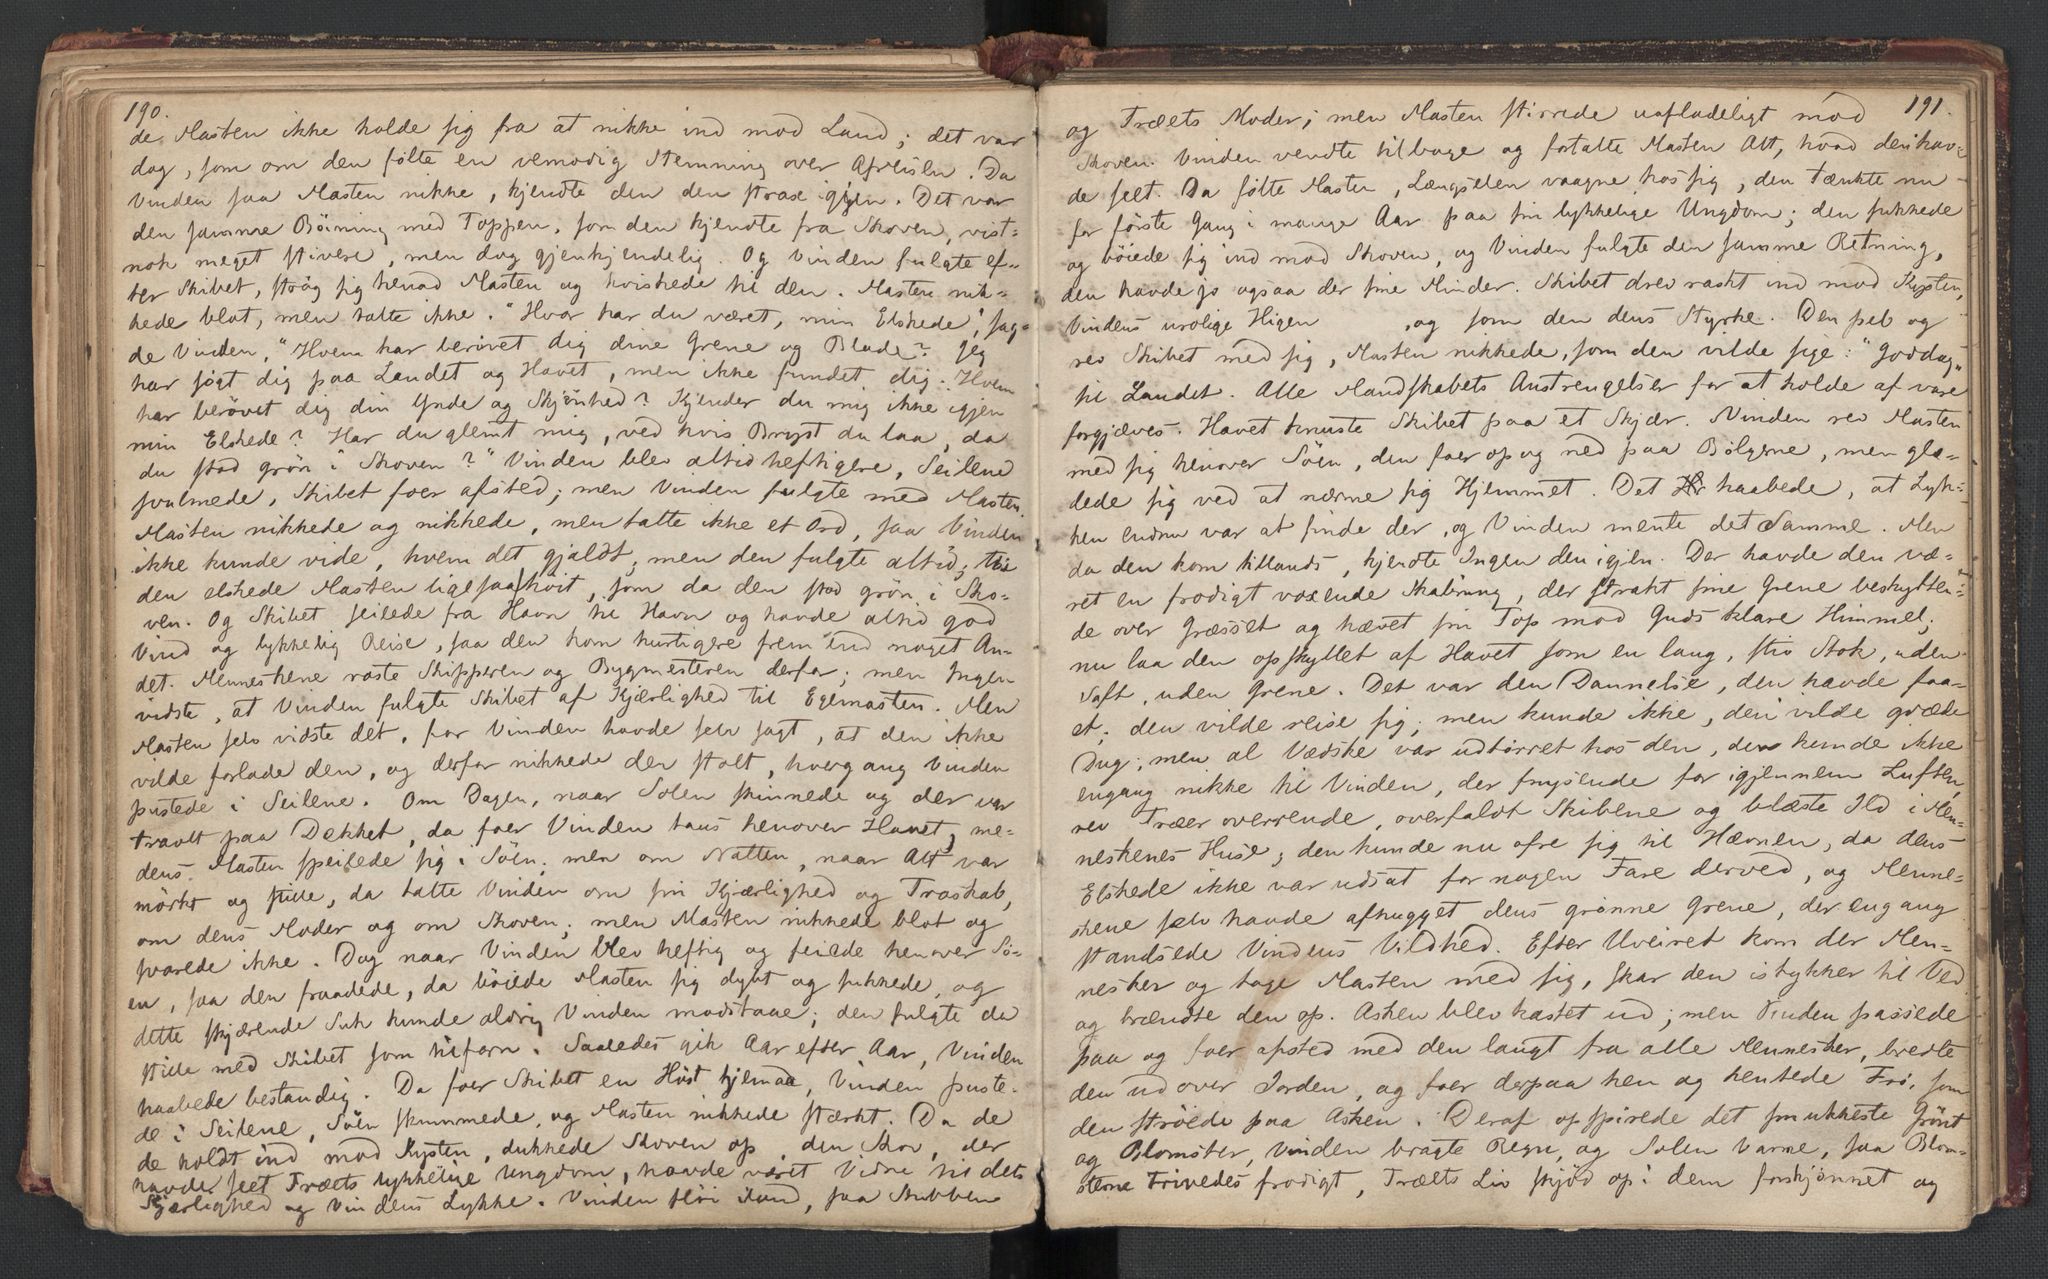 190.
de Masten ikke holde sig fra at nikke ind mod Land; det var
dog, som om den følte en vemodig Stemning over Afreisen. Da
Vinden saa Masten nikke, kjendte den den strax igjen. Det var
den samme Böining med Toppen, som den kjendte fra Skoven, vist-
nok meget stivere, men dog gjenkjendelig. Og Vinden fulgte ef-
ter Skibet, strög sig henad Masten og hviskede til den. Masten nik-
kede blot, men talte ikke. "Hvor har du været, min Elskede", sag-
de Vinden, "Hvem har berövet dig dine Grene og Blade? Jeg
har sögt dig paa Landet og Havet, men ikke fundet dig. Hvem
har berövet dig din Ynde og Skjönhed? Kjender du mig ikke igjen
min Elskede? Har du glemt mig, ved hvis Bryst du laa, da
du stod grön i Skoven?" Vinden blev altid heftigere, Seilene
svulmede, Skibet foer afsted; men Vinden fulgte med Masten.
Masten nikkede og nikkede, men talte ikke et Ord, saa Vinden
ikke kunde vide, hvem det gjaldt; men den fulgte altid, thi
den elskede Masten ligesaa höit, som da den stod grön i Sko-
ven. Og Skibet seilede fra Havn til Havn og havde altid god
Vind og lykkelig Reise, saa den kom hurtigere frem end noget An-
det. Menneskene roste Skipperen og Bygmesteren derfor; men Ingen
vidste, at Vinden fulgte Skibet af Kjærlighed til Egemasten. Men
Masten selv vidste det, for Vinden havde selv sagt, at den ikke
vilde forlade den, og derfor nikkede den stolt, hvergang Vinden
pustede i Seilene. Om Dagen, naar Solen skinnede og der var
travlt paa Dækket, da foer Vinden taus henover Havet, me-
dens Masten speilede sig i Söen; men om Natten, naar Alt var
mörkt og stille, da talte Vinden om sin Kjærlighed og Troskab,
om dens Moder og om Skoven; men Masten nikkede blot og
svarede ikke. Dog naar Vinden blev heftig og feiede henover Sö-
en, saa den fraadede, da böiede Masten sig dybt og sukkede, og
dette skjærende Suk kunde aldrig Vinden modstaae; den fulgte da
stille med Skibet som tilforn. Saaledes gik Aar efter Aar, Vinden
haabede bestandig. Da foer Skibet en Höst hjemad, Vinden puste-
de i Seilene, Söen skummede, og Masten nikkede stærkt. Da de
de holdt ind mod Kysten, dukkede Skoven op, den Skov, der
havde seet Træets lykkelige Ungdom, havde været Vidne til dets
Kjærlighed og Vindens Lykke. Vinden flöi ilund, saa Stubben
191.
og Træets Moder; men Masten stirrede uafladeligt mod
Skoven. Vinden vendte tilbage og fortalte Masten Alt, hvad den hav-
de seet. Da følte Masten, Længselen vaagne hos sig, den tænkte nu
for förste Gang i mange Aar paa sin lykkelige Ungdom; den sukkede
og böiede sig ind mod Skoven, og Vinden fulgte den samme Retning,
den havde jo ogsaa der sine Minder. Skibet drev raskt ind mod Kysten,
Vindens urolige Higen , og som den dens Styrke. Den peb og
rev Skibet med sig, Masten nikkede, som den vilde sige: "Goddag"
til Landet. Alle Mandskabets Anstrengelser for at holde af vare
forgjæves. Havet knuste Skibet paa et Skjær. Vinden rev Masten
med sig henover Söen, den foer op og ned paa Bölgerne, men glæ-
dede sig ved at nærme sig Hjemmet. Det haabede, at Lyk-
ken endnu var at finde der, og Vinden mente det Samme. Men
da den kom tillands, kjendte Ingen den igjen. Der havde den væ-
ret en frodigt voxende Skabning, der strakt sine Grene beskytten-
de over Græsset og hævet sin Top mod Guds klare Himmel;
nu laa den opskyllet af Havet som en lang, stiv Stok, uden
Saft, uden Grene. Det var den Dannelse, den havde faa-
et; den vilde reise sig; men kunde ikke, den vilde græde
Dug; men al Vædske var udtörret hos den, den kunde ikke
engang nikke til Vinden, der fnysende foer igjennem Luften,
rev Træer overende, overfaldt Skibene og blæste Ild i Men-
neskenes Huse; den kunde nu ofre sig til Hævnen, da dens
Elskede ikke var udsat for nogen Fare derved, og Menne-
skene selv havde afhugget dens grönne Grene, der engang
standsede Vindens Vildhed. Efter Uveiret kom der Men-
nesker og toge Masten med sig, skar den istykker til Ved
og brændte den op. Asken blev kastet ud; men Vinden passede
paa og foer afsted med den langt fra alle Mennesker, bredte
den ud over Jorden, og foer derpaa hen og hentede Frö, som
den ströede paa Asken. Deraf opspirede det smukkeste Grönt
og Blomster, Vinden bragte Regn, og Solen Varme, saa Blom-
sterne trivedes frodigt, Træets Liv skjöd op i dem forskjönnet og